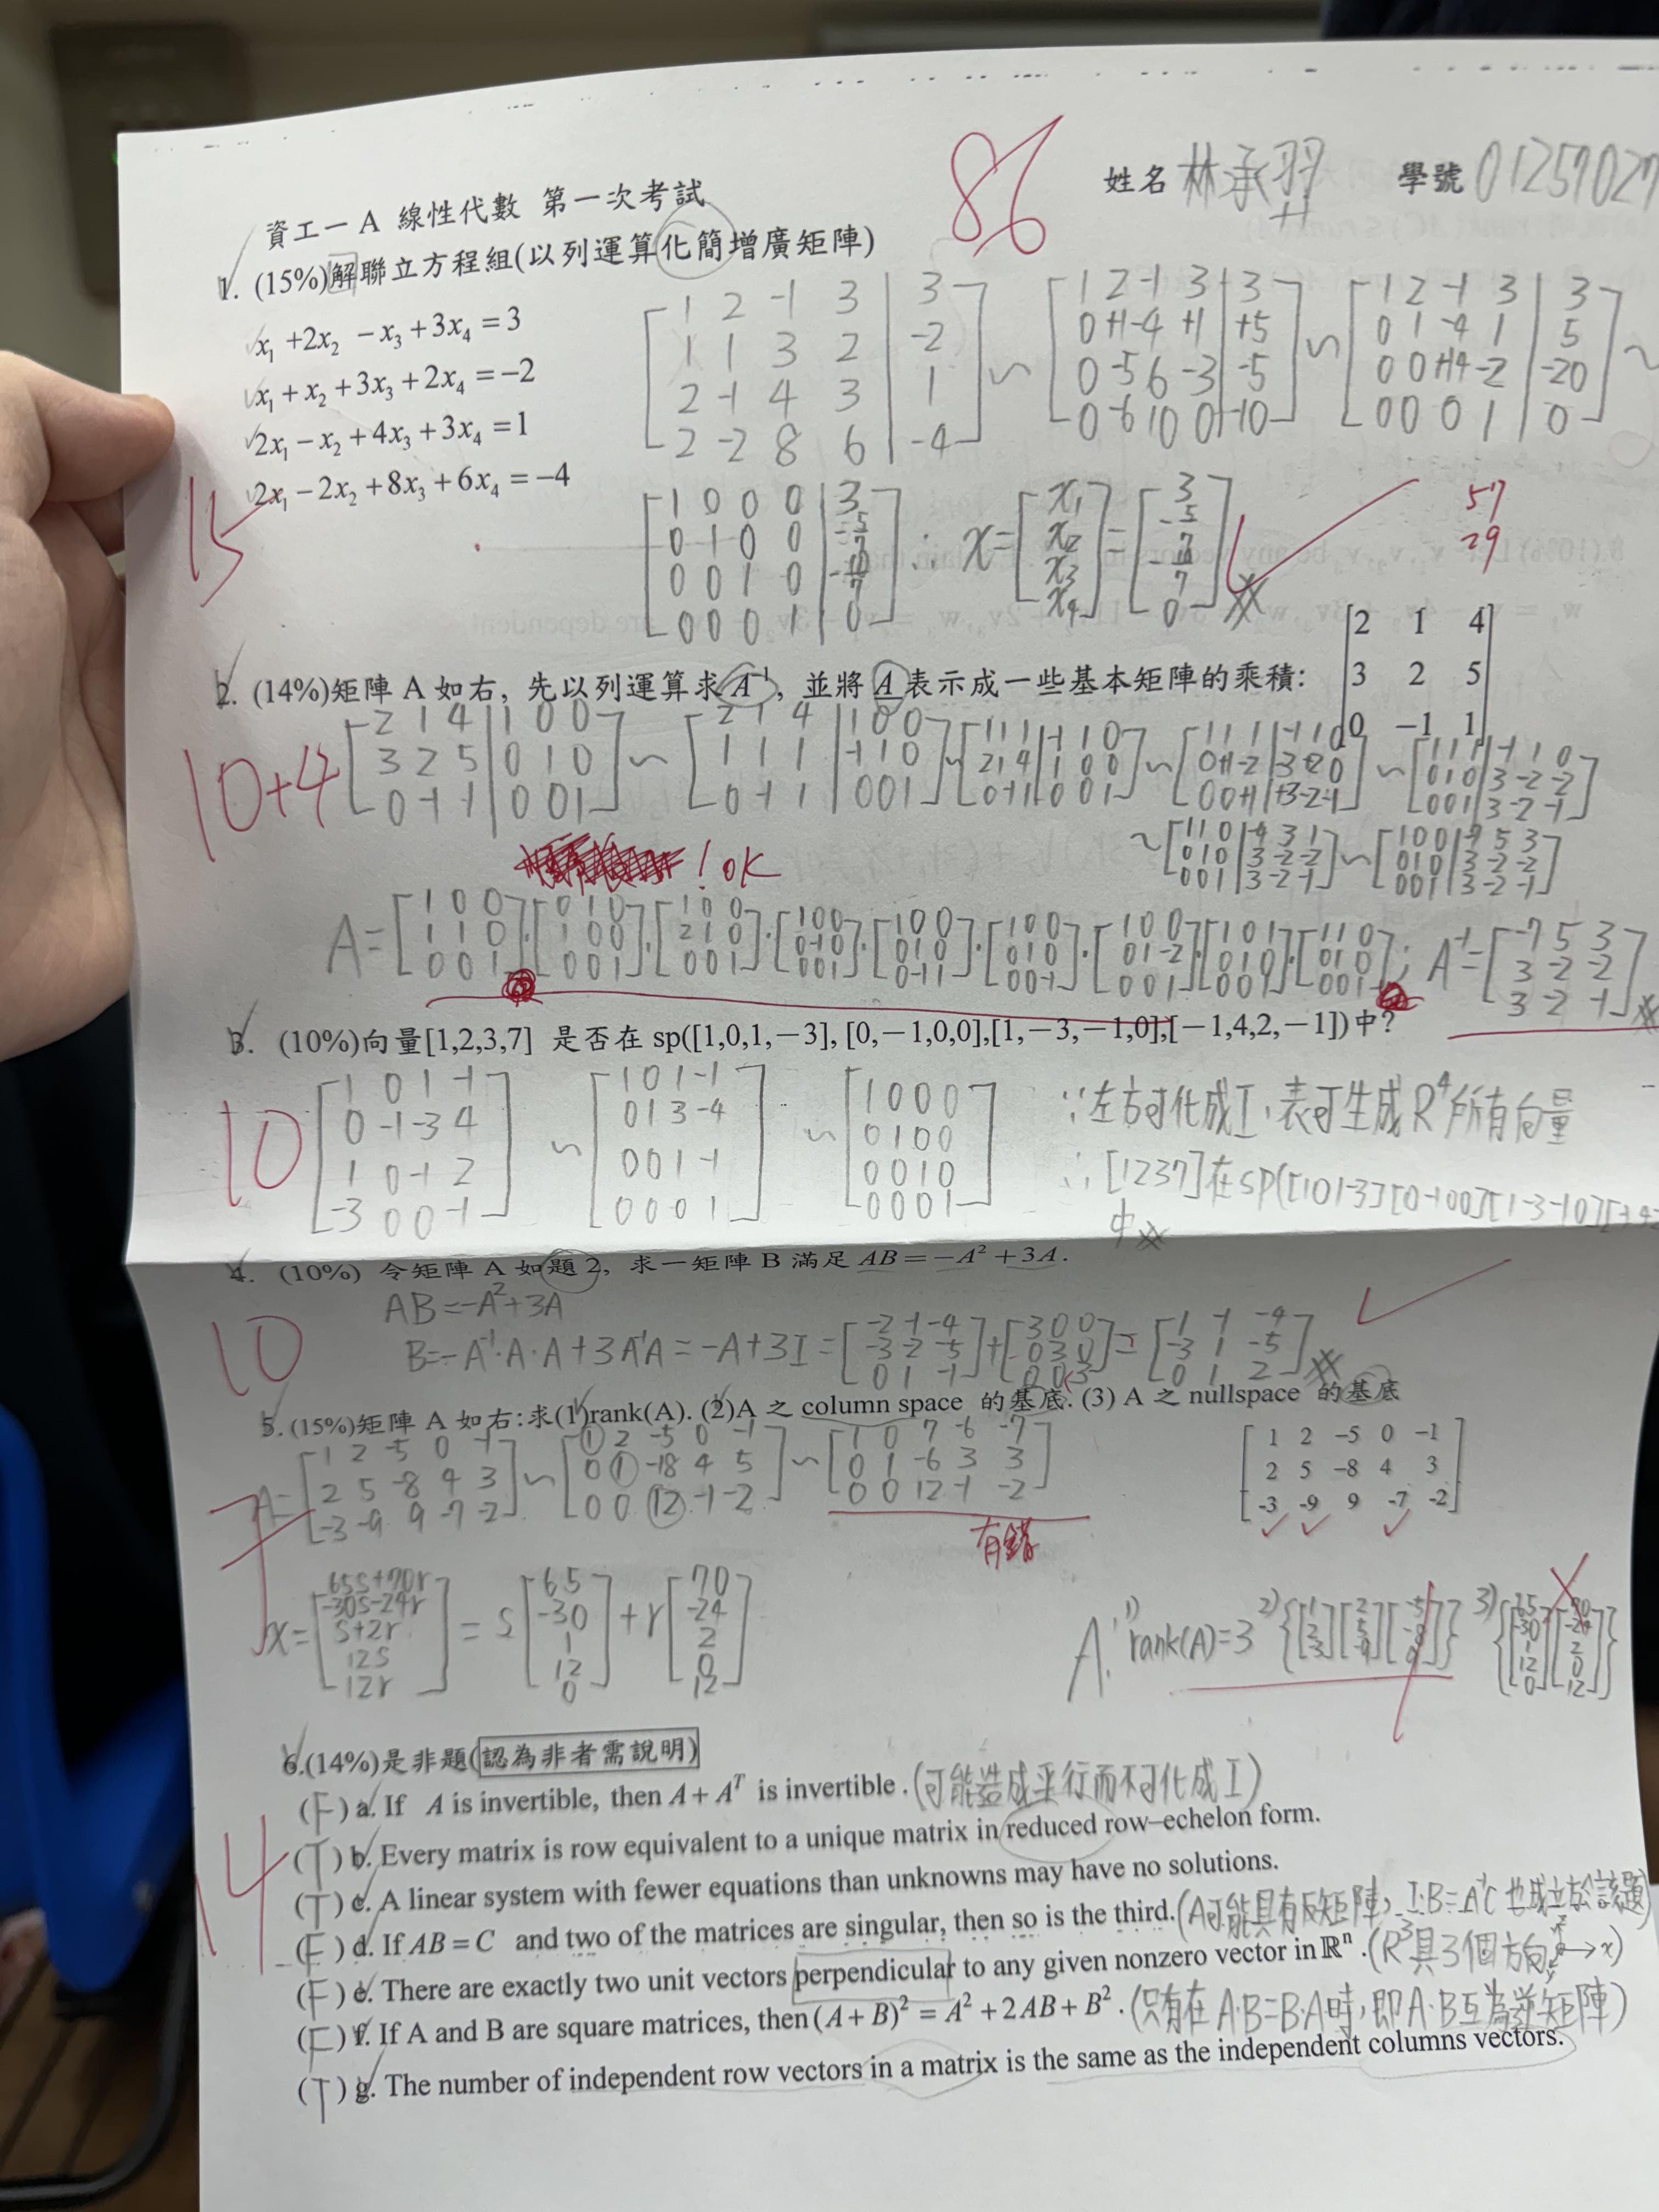 86
姓名 林承羿 學號 01257027
資工一 A 線性代數 第一次考試
1. (15%)解聯立方程組(以列運算化簡增廣矩陣)
x₁ +2x₂ −x₃ +3x₄ = 3
x₁ + x₂ +3x₃ +2x₄ = −2
2x₁ − x₂ +4x₃ +3x₄ = 1
2x₁ −2x₂ +8x₃ +6x₄ = −4
[1 2 -1 3 | 3
1 1 3 2 | -2
2 -1 4 3 | 1
2 -2 8 6 | -4]
~ [1 2 -1 3 | 3
0 +1 -4 +1 | +5
0 -5 6 -3 | -5
0 -6 10 0 | -10]
~ [1 2 -1 3 | 3
0 1 -4 1 | 5
0 0 +14 -2 | -20
0 0 0 1 | 0] ~
15
[1 0 0 0 | 3
0 1 0 0 | -5/7
0 0 1 0 | -10/7
0 0 0 1 | 0]
∴ x = [x₁ x₂ x₃ x₄] = [3 -5/7 -10/7 0]
57
29
2. (14%)矩陣 A 如右, 先以列運算求 A⁻¹, 並將 A 表示成一些基本矩陣的乘積:
[2 1 4
3 2 5
0 −1 1]
10+4
[2 1 4 | 1 0 0
3 2 5 | 0 1 0
0 -1 1 | 0 0 1]
~ [2 1 4 | 1 0 0
1 1 1 | -1 1 0
0 -1 1 | 0 0 1]
~ [1 1 1 | -1 1 0
2 1 4 | 1 0 0
0 -1 1 | 0 0 1]
~ [1 1 1 | -1 1 0
0 +1 -2 | -3 +2 0
0 0 +1 | +3 -2 -1]
~ [1 1 1 | -1 1 0
0 1 0 | 3 -2 -2
0 0 1 | 3 -2 -1]
~ [1 1 0 | -4 3 1
0 1 0 | 3 -2 -2
0 0 1 | 3 -2 -1]
~ [1 0 0 | -7 5 3
0 1 0 | 3 -2 -2
0 0 1 | 3 -2 -1]
! OK
A = [1 0 0
1 1 0
0 0 1]
· [0 1 0
1 0 0
0 0 1]
· [1 0 0
2 1 0
0 0 1]
· [1 0 0
0 -1 0
0 0 1]
· [1 0 0
0 1 0
0 -1 1]
· [1 0 0
0 1 0
0 0 -1]
· [1 0 0
0 1 -2
0 0 1]
· [1 0 1
0 1 0
0 0 1]
· [1 1 0
0 1 0
0 0 1]
; A⁻¹ = [-7 5 3
3 -2 -2
3 -2 -1]
3. (10%)向量[1,2,3,7] 是否在 sp([1,0,1,−3], [0,−1,0,0],[1,−3,−1,0],[−1,4,2,−1])中?
10
[1 0 1 -1
0 -1 -3 4
1 0 -1 2
-3 0 0 -1]
~ [1 0 1 -1
0 1 3 -4
0 0 1 -1
0 0 0 1]
~ [1 0 0 0
0 1 0 0
0 0 1 0
0 0 0 1]
∵左方可化成I,表可生成R⁴所有向量
∴[1237]在sp([101-3][0-100][1-3-10][-14
中
4. (10%) 令矩陣 A 如題 2, 求一矩陣 B 滿足 AB = −A² +3A.
10
AB=-A²+3A
B=-A⁻¹·A·A+3A⁻¹A=-A+3I=
[-2 -1 -4
-3 -2 -5
0 1 -1]
+ [3 0 0
0 3 0
0 0 3]
= [1 -1 -4
-3 1 -5
0 1 2]
5. (15%)矩陣 A 如右:求(1)rank(A). (2)A 之 column space 的基底. (3) A 之 nullspace 的基底
[1 2 −5 0 −1
2 5 −8 4 3
-3 -9 9 -7 -2]
7
A= [1 2 -5 0 -1
2 5 -8 4 3
-3 -9 9 -7 -2]
~ [1 2 -5 0 -1
0 1 -18 4 5
0 0 12 -1 -2]
~ [1 0 7 -6 -7
0 1 -6 3 3
0 0 12 -1 -2]
有錯
x= [65s+70r
-30s-24r
s+2r
12s
12r]
= s [65
-30
1
12
0]
+ r [70
-24
2
0
12]
A: 1) rank(A)=3 2) {[1 2 -3][2 5 -9][-5 -8 9]} 3) {[65 -30 1 12 0][70 -24 2 0 12]}
6.(14%)是非題(認為非者需說明)
14
(F) a. If A is invertible, then A + Aᵀ is invertible . (可能造成平行而不可化成I)
(T) b. Every matrix is row equivalent to a unique matrix in reduced row–echelon form.
(T) c. A linear system with fewer equations than unknowns may have no solutions.
(F) d. If AB = C and two of the matrices are singular, then so is the third. (A可能具有反矩陣, I·B=A⁻¹C 也成立於該題)
(F) e. There are exactly two unit vectors perpendicular to any given nonzero vector in ℝⁿ . (R³具3個方向 z y → x)
(F) f. If A and B are square matrices, then (A + B)² = A² + 2AB + B² . (只有在A·B=B·A時,即A·B互為逆矩陣)
(T) g. The number of independent row vectors in a matrix is the same as the independent columns vectors.